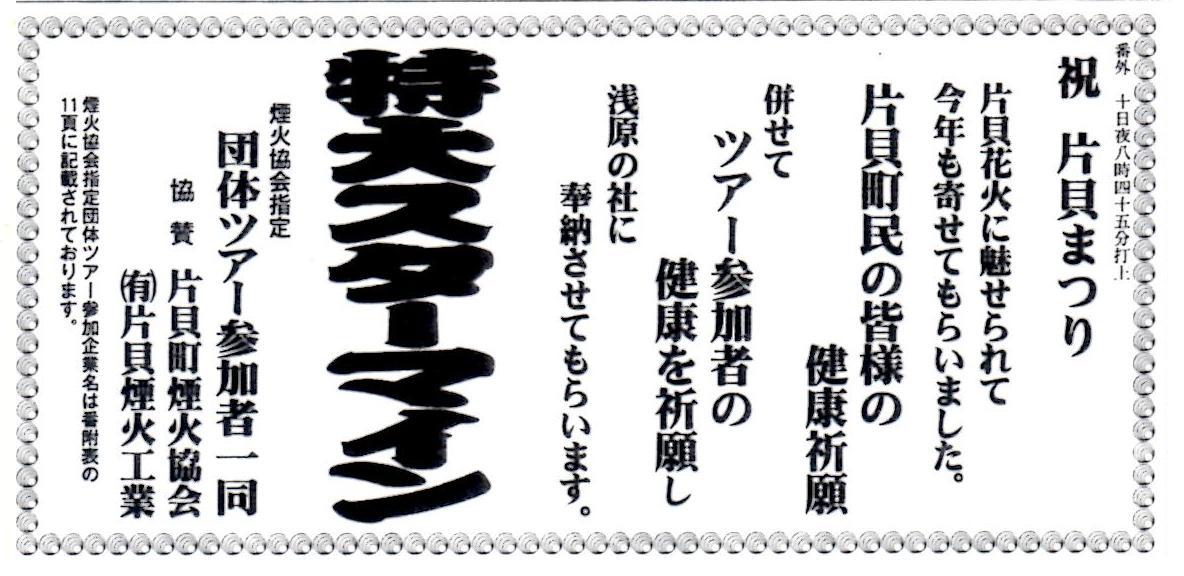 番外　十日夜八時四十五分打上
祝　片貝まつり
片貝花火に魅せられて
今年も寄せてもらいました。
片貝町民の皆様の
健康祈願
併せて
ツアー参加者の
健康を祈願し
浅原の社に
奉納させてもらいます。
特大スターマイン
煙火協会指定
団体ツアー参加者一同
協賛　片貝町煙火協会
㈲片貝煙火工業
煙火協会指定団体ツアー参加企業名は番附表の
11頁に記載されております。